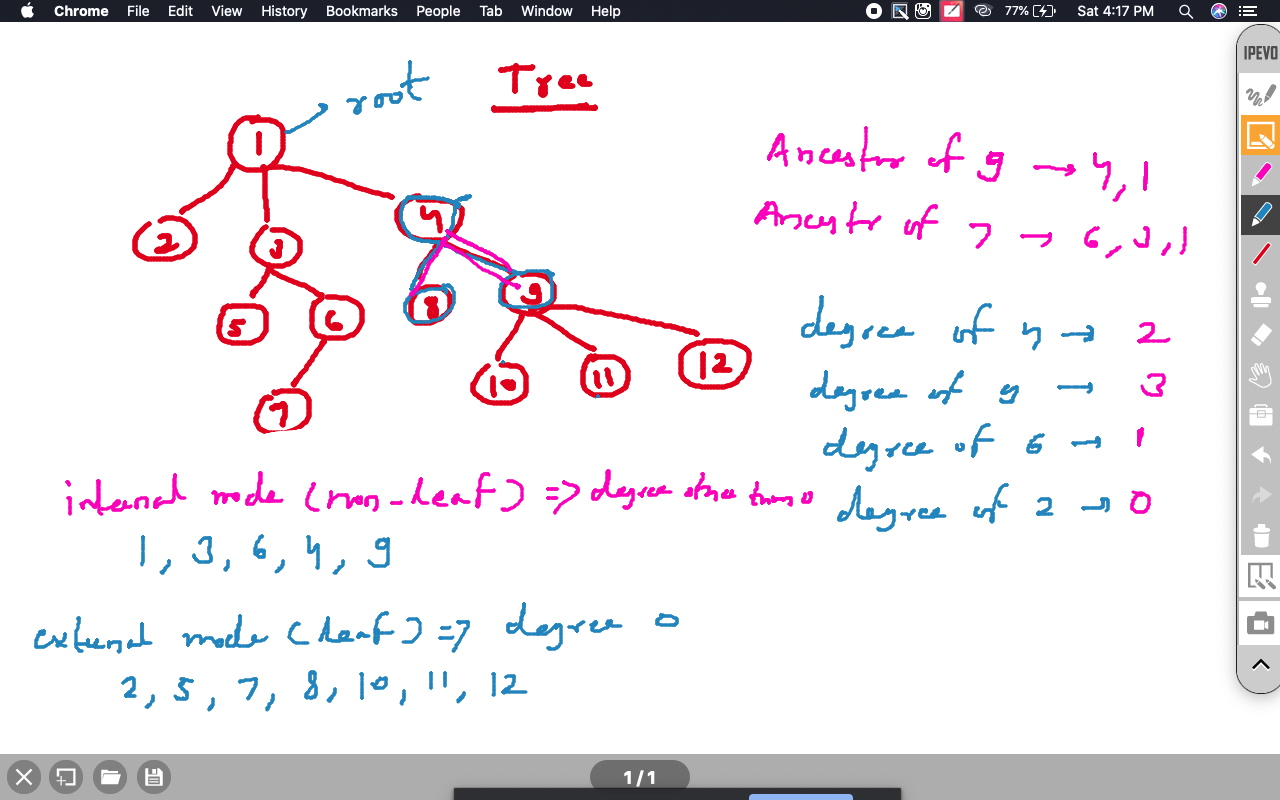 Chrome File Edit View History Bookmarks People Tab Window Help 77% Sat 4:17 PM
IPEVO
Tree
root
1
2 3 4
5 6 8 9
7 10 11 12
Ancestor of 9 → 4, 1
Ancestr of 7 → 6, 3, 1
degree of 4 → 2
degree of 9 → 3
degree of 6 → 1
degree of 2 → 0
internal node (non-leaf) => degree other than 0
1, 3, 6, 4, 9
external node (leaf) => degree 0
2, 5, 7, 8, 10, 11, 12
1/1